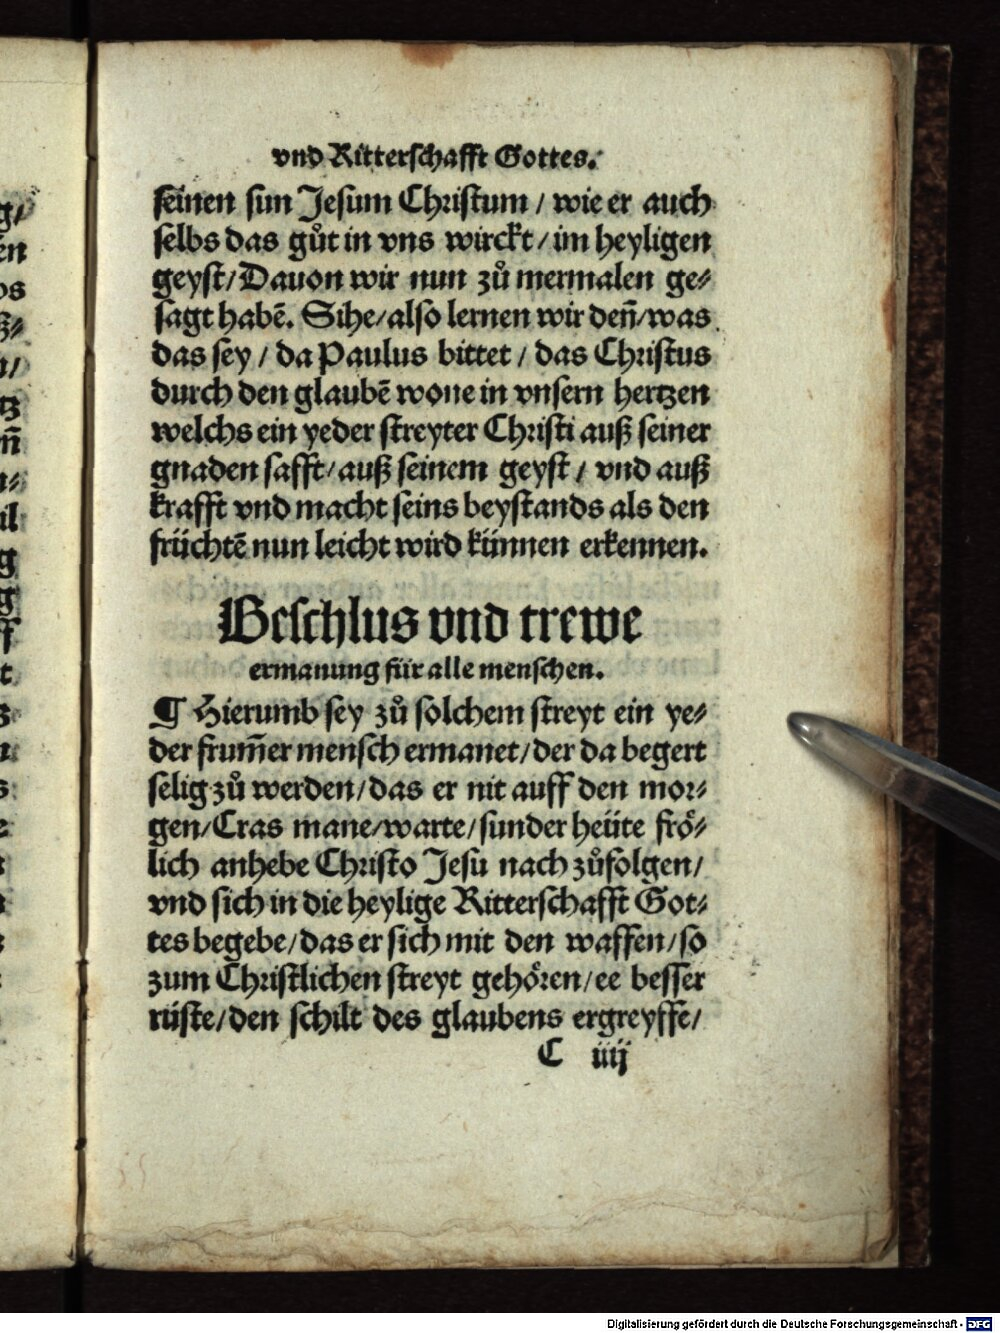 vnd Ritterschafft Gottes.
seinen sun Jesum Christum / wie er auch
selbs das gůt in vns wirckt / im heyligen
geyst / Dauon wir nun zů mermalen ge⸗
sagt habē. Sihe / also lernen wir deñ / was
das sey / da Paulus bittet / das Christus
durch den glaubē wone in vnsern hertzen
welchs ein yeder streyter Christi auß seiner
gnaden safft / auß seinem geyst / vnd auß
krafft vnd macht seins beystands als den
früchtē nun leicht wird künnen erkennen.
Beschlus vnd trewe
ermanung für alle menschen.
¶ Hierumb sey zů solchem streyt ein ye⸗
der frum̄er mensch ermanet / der da begert
selig zů werden / das er nit auff den mor⸗
gen / Cras mane / warte / sunder heüte frö⸗
lich anhebe Christo Jesu nach zůfolgen /
vnd sich in die heylige Ritterschafft Got⸗
tes begebe / das er sich mit den waffen / so
zum Christlichen streyt gehören / ee besser
rüste / den schilt des glaubens ergreyffe /
C iiij
Digitalisierung gefördert durch die Deutsche Forschungsgemeinschaft - DFG